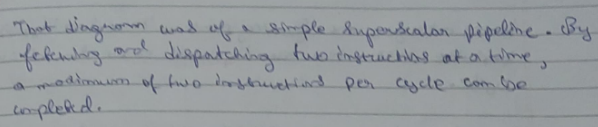 That diagram was of a simple superscalar pipeline. By
fetching and dispatching two instructions at a time,
a maximum of two instructions per cycle can be
completed.